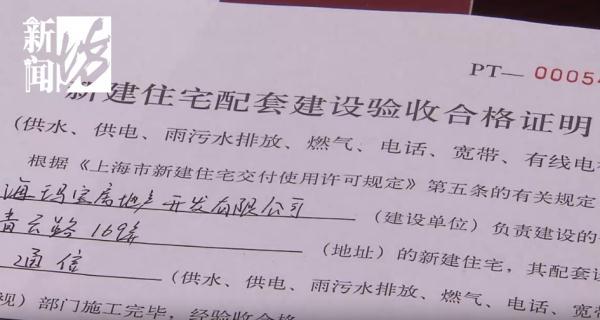 新闻坊
PT— 00054
新建住宅配套建设验收合格证明
(供水、供电、雨污水排放、燃气、电话、宽带、有线电
根据《上海市新建住宅交付使用许可规定》第五条的有关规定
海 房地产开发有限公司 (建设单位) 负责建设的
青云路169弄 (地址) 的新建住宅，其配套
通信 (供水、供电、雨污水排放、燃气、电话、宽
视) 部门施工完毕，经验收合格